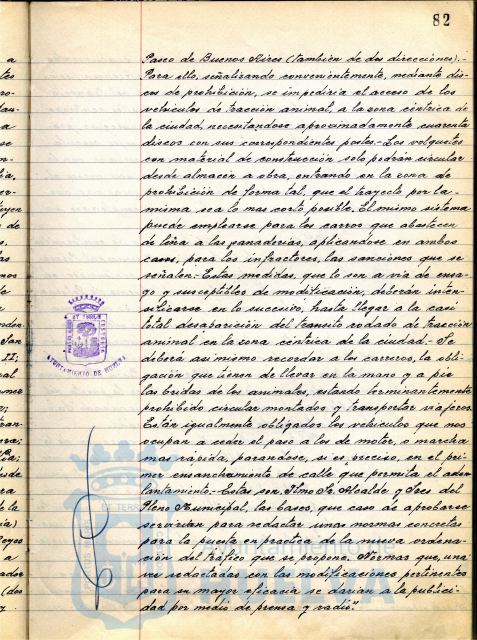 82
Paseo de Buenos Aires (también de dos direcciones).-
Para ello, señalizando convenientemente, mediante dis-
cos de prohibición, se impediria el acceso de los
vehiculos de tracción animal, a la zona céntrica de
la ciudad, necesitandose aproximadamente cuarenta
discos con sus correspondientes postes.- Los volquetes
con material de construcción solo podrán circular
desde almacén a obra, entrando en la zona de
prohibición de forma tal, que el trayecto por la
misma sea lo mas corto posible. El mismo sistema
puede emplearse para los carros que abastecen
de leña a las panaderias, aplicandose en ambos
casos, para los infractores, las sanciones que se
señalen.- Estas medidas, que lo son a via de ensa-
yo y susceptibles de modificación, deberán inten-
sificarse en lo sucesivo, hasta llegar a la casi
total desaparición del transito rodado de tracción
animal en la zona céntrica de la ciudad.- Se
deberá asi mismo recordar a los carreros, la obli-
gación que tienen de llevar en la mano y a pie
las bridas de los animales, estando terminantemente
prohibido circular montados y transportar viajeros.
Están igualmente obligados los vehiculos que nos
ocupan a ceder el paso a los de motor, o marcha
mas rápida, parandose, si es preciso, en el pri-
mer ensanchamiento de calle que permita el ade-
lantamiento.- Estas son, Ilmo Sr. Alcalde y Sres del
Pleno Municipal, las bases, que caso de aprobarse
servirian para redactar unas normas concretas
para la puesta en practica de la nueva ordena-
ción del tráfico que se propone. Normas que, una
vez redactadas con las modificaciones pertinentes
para su mayor eficacia se darian a la publici-
dad por medio de prensa y radio".
AYUNTAMIENTO DE HUELVA